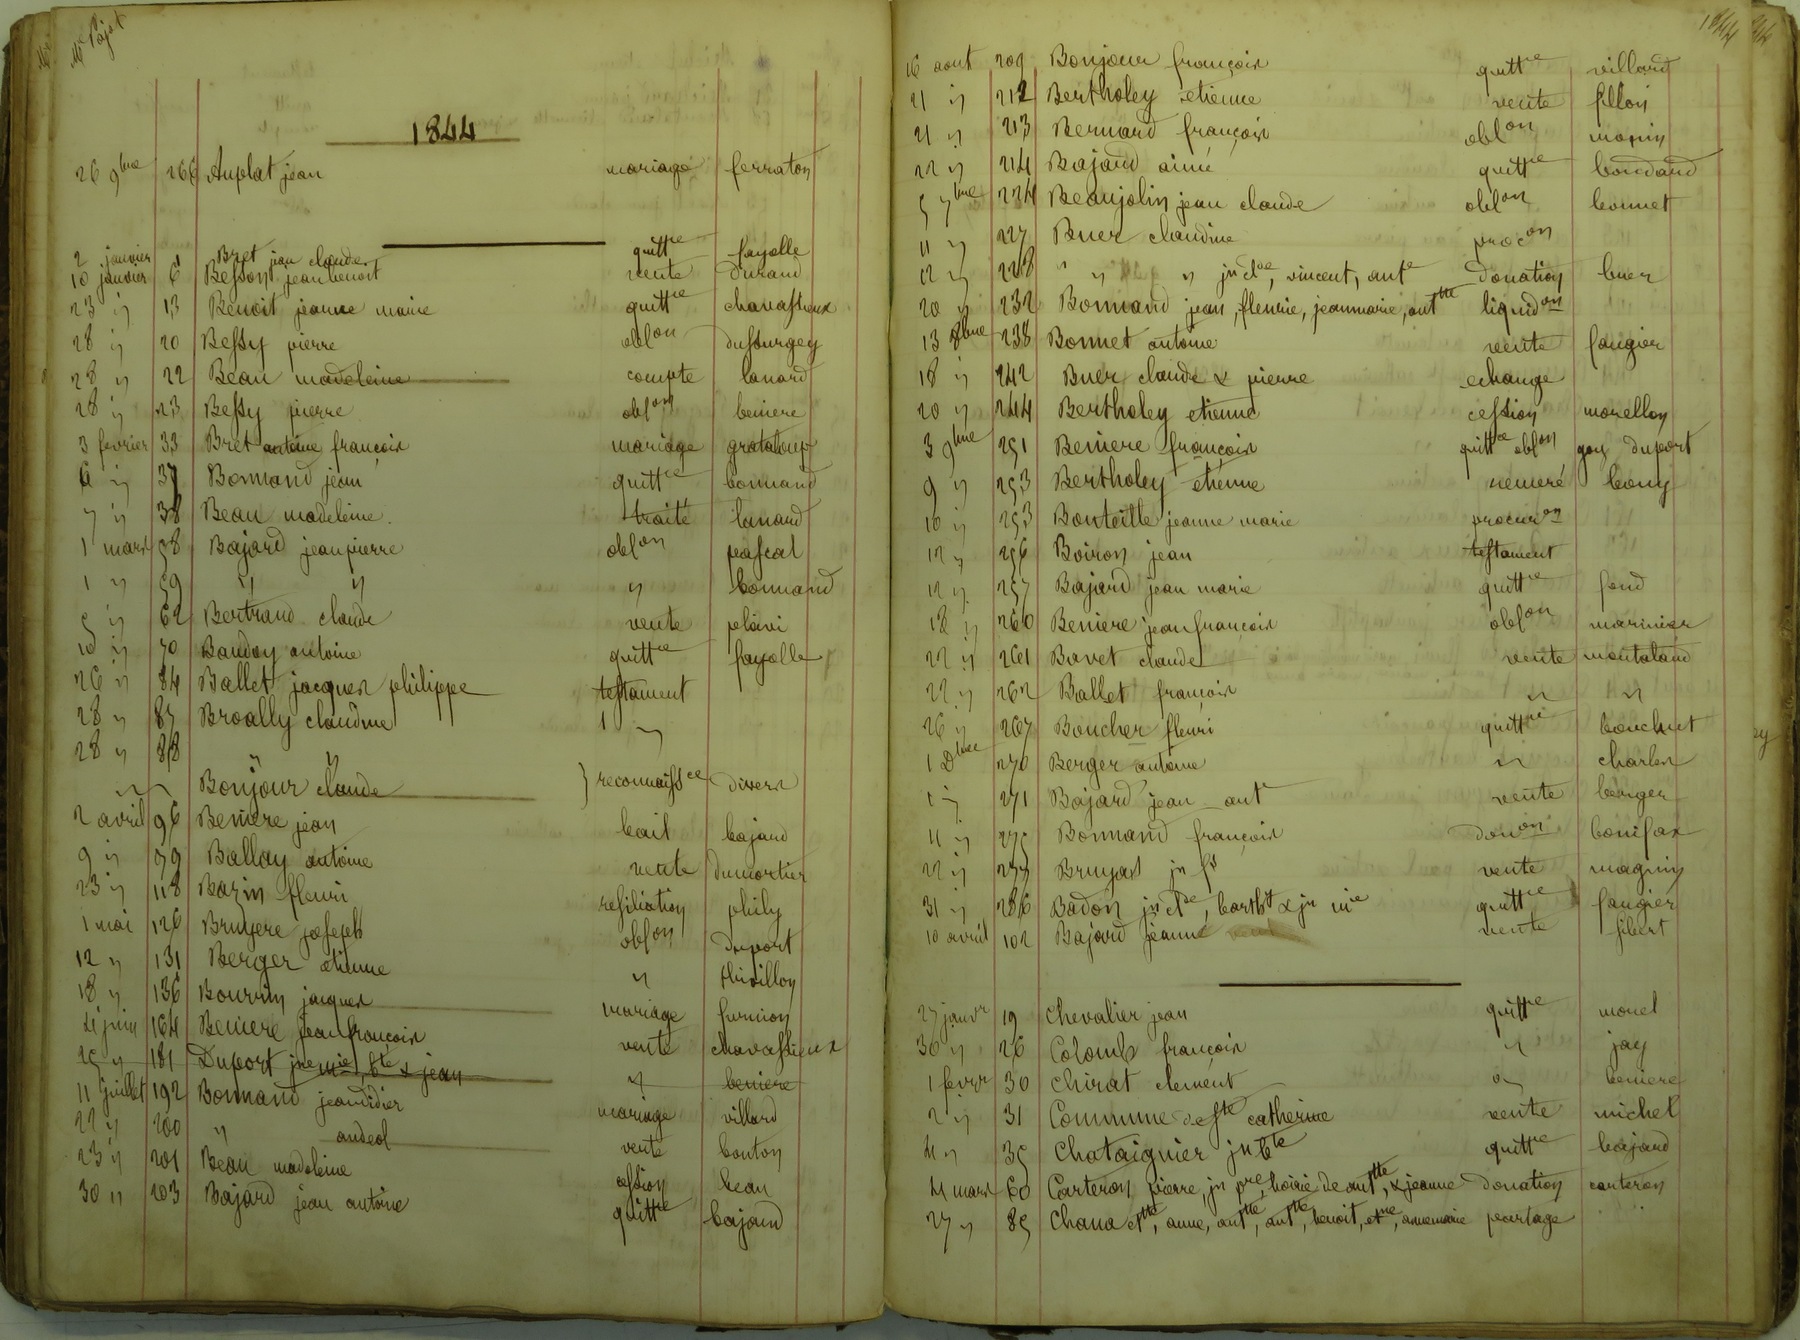 Me Pajot
1844
26 9bre 266 Auplat jean mariage ferraton
2 janvier Bret jean claude quittce fayolle
10 janvier 6 Besson jean benoit vente durand
23 " 13 Benoit jeanne marie quittce chavassieux
28 " 20 Bessy pierre oblon dussurgey
28 " 22 Beau madeleine compte lanard
28 " 23 Bessy pierre oblon beniere
3 fevrier 33 Bret antoine françois mariage grataloup
6 " 37 Bonnand jean quittce bonnand
7 " 38 Beau madeleine traité lanard
1 mars 58 Bajard jean pierre oblon pascal
1 " 59 " " " bonnand
5 " 62 Bertrand claude vente
10 " 70 Baudoy antoine quittce fayolle
26 " 84 Ballet jacques philippe testament
28 " 87 Broally claudine 1 "
28 " 88 " "
" " Bonjour claude } reconnaissce divers
2 avril 96 Beniere jean bail bajard
9 " 99 Ballay antoine vente dumortier
23 " 118 Bazin fleuri resiliation phily
1 mai 126 Bruyere joseph oblon duport
12 " 131 Berger etienne " thivillon
18 " 136 Bourrin jacques mariage furnion
4 juin 164 Beniere jean françois vente chavassieux
25 " 181 Duport jne mie, bte & jean " beniere
11 juillet 192 Bonnand jean didier mariage villard
22 " 200 " andeol vente bonton
23 " 201 Beau madeleine cession beau
30 " 203 Bajard jean antoine quittce bajard
1844
16 aout 209 Bonjour françois quittce villard
21 " 212 Bertholey etienne vente fillon
21 " 213 Bernard françois oblon monin
22 " 214 Bajard aimé quittce bondand
5 7bre 224 Beaujolin jean claude oblon bonnet
11 " 227 Buer claudine procon
12 " 228 " " " jn cde, vincent, ante donation buer
20 " 232 Bonnand jean, fleurie, jeanmarie, anttte liquidon
13 8bre 238 Bonnet antoine vente faugier
18 " 242 Buer claude & pierre echange
20 " 244 Bertholey etienne cession morellon
3 9bre 251 Beniere françois quittce oblon gay duport
9 " 253 Bertholey etienne remeré bony
10 " 253 Bouteille jeanne marie procuron
12 " 256 Boiron jean testament
12 " 257 Bajard jean marie quittce fond
18 " 260 Beniere jean françois oblon marinier
22 " 261 Bavet claude vente montaland
22 " 262 Ballet françois " "
26 " 267 Boucher fleuri quittce bouchut
1 Dbre 270 Berger antoine " charles
1 " 271 Bajard jean ant vente berger
11 " 275 Bonnand françois donon bonifax
22 " 277 Bruyas jn fs vente magnin
31 " 286 Badon jn cde, barthy & jn mie quittce faugier
10 avril 102 Bajard jeanne vente filbert
27 janvr 19 Chevalier jean quittce morel
30 " 26 Colomb françois " jay
1 fevrr 30 Chirat clement " beniere
2 " 31 Commune de ste catherine vente michel
4 " 35 Chataignier jn bte quittce bajard
4 mars 60 Carteron pierre, jn pre, hoirie de anttte, & jeanne donation carteron
27 " 85 Chana ettte, anne, anttte, anttte, benoit, etne, annemarie partage